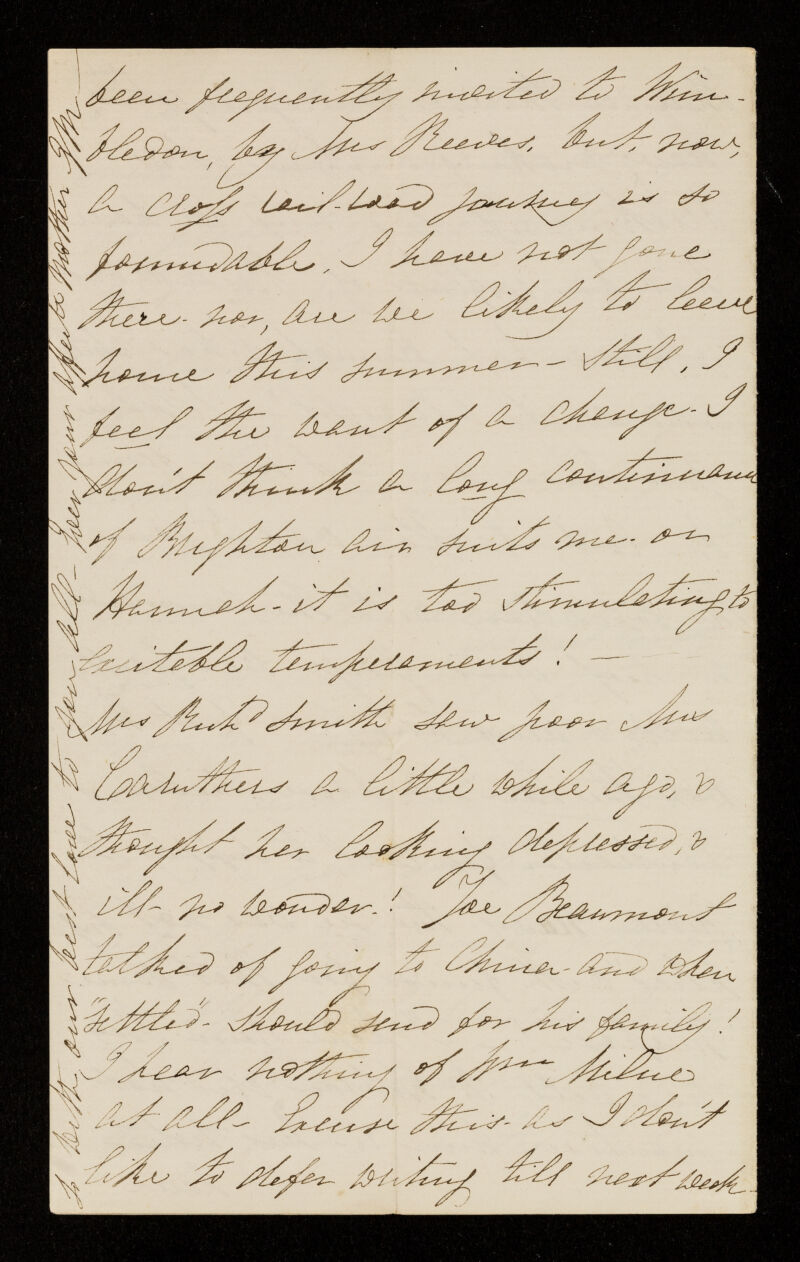 been frequently invited to Wim-
bledon, by Mrs Reeves, but, now,
a cross rail-road journey is so
formidable, I have not gone
there - nor, are we likely to leave
home this summer - Still, I
feel the want of a change - I
don't think a long continuance
of Brighton air suits me - or
Hannah - it is too stimulating to
excitable temperaments! -
Mrs Richd Smith saw poor Mrs
Caruthers a little while ago, &
thought her looking depressed, &
ill - no wonder! Joe Beaumont
talked of going to China - and when
"settled" - should send for his family!
I hear nothing of Wm Milne
at all - Excuse this - as I don't
like to defer writing till next week -
With our best love to you all - Ever your affecte Mother